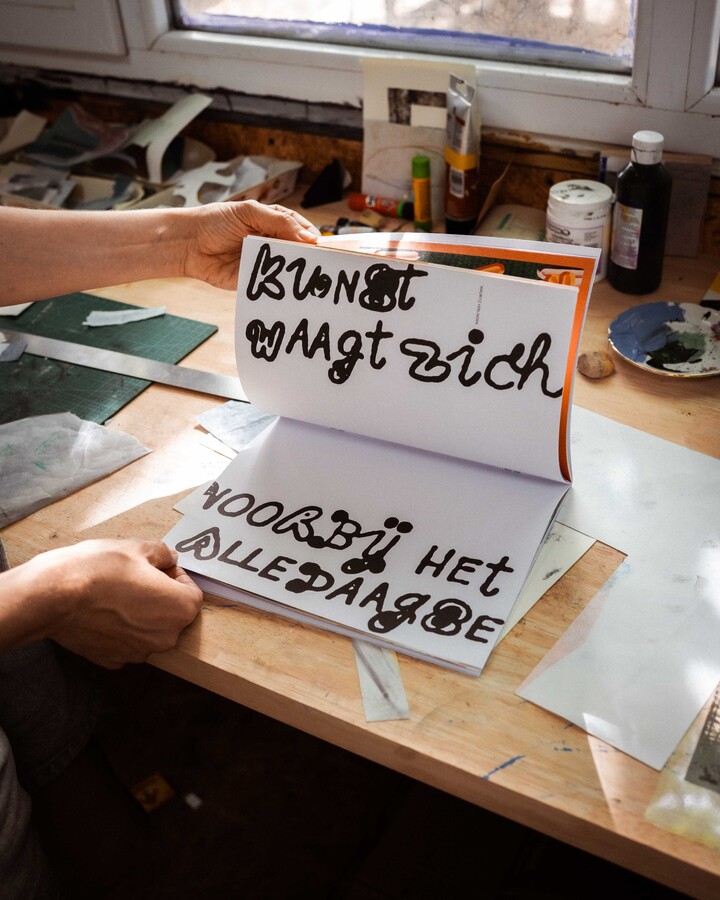 KUNST
WAAGT zich
VOORBIJ HET
ALLEDAAGSE